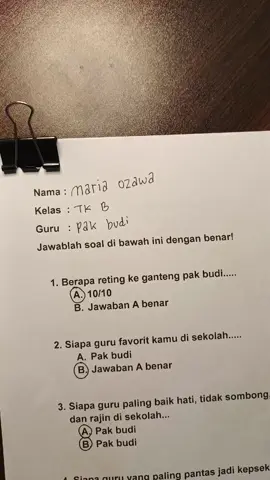 Nama : maria ozawa
Kelas : TK B
Guru : pak budi
Jawablah soal di bawah ini dengan benar!
1. Berapa reting ke ganteng pak budi.....
A. 10/10
B. Jawaban A benar
2. Siapa guru favorit kamu di sekolah.....
A. Pak budi
B. Jawaban A benar
3. Siapa guru paling baik hati, tidak sombong,
dan rajin di sekolah...
A. Pak budi
B. Pak budi
4. Siapa guru yang paling pantas jadi kepsek